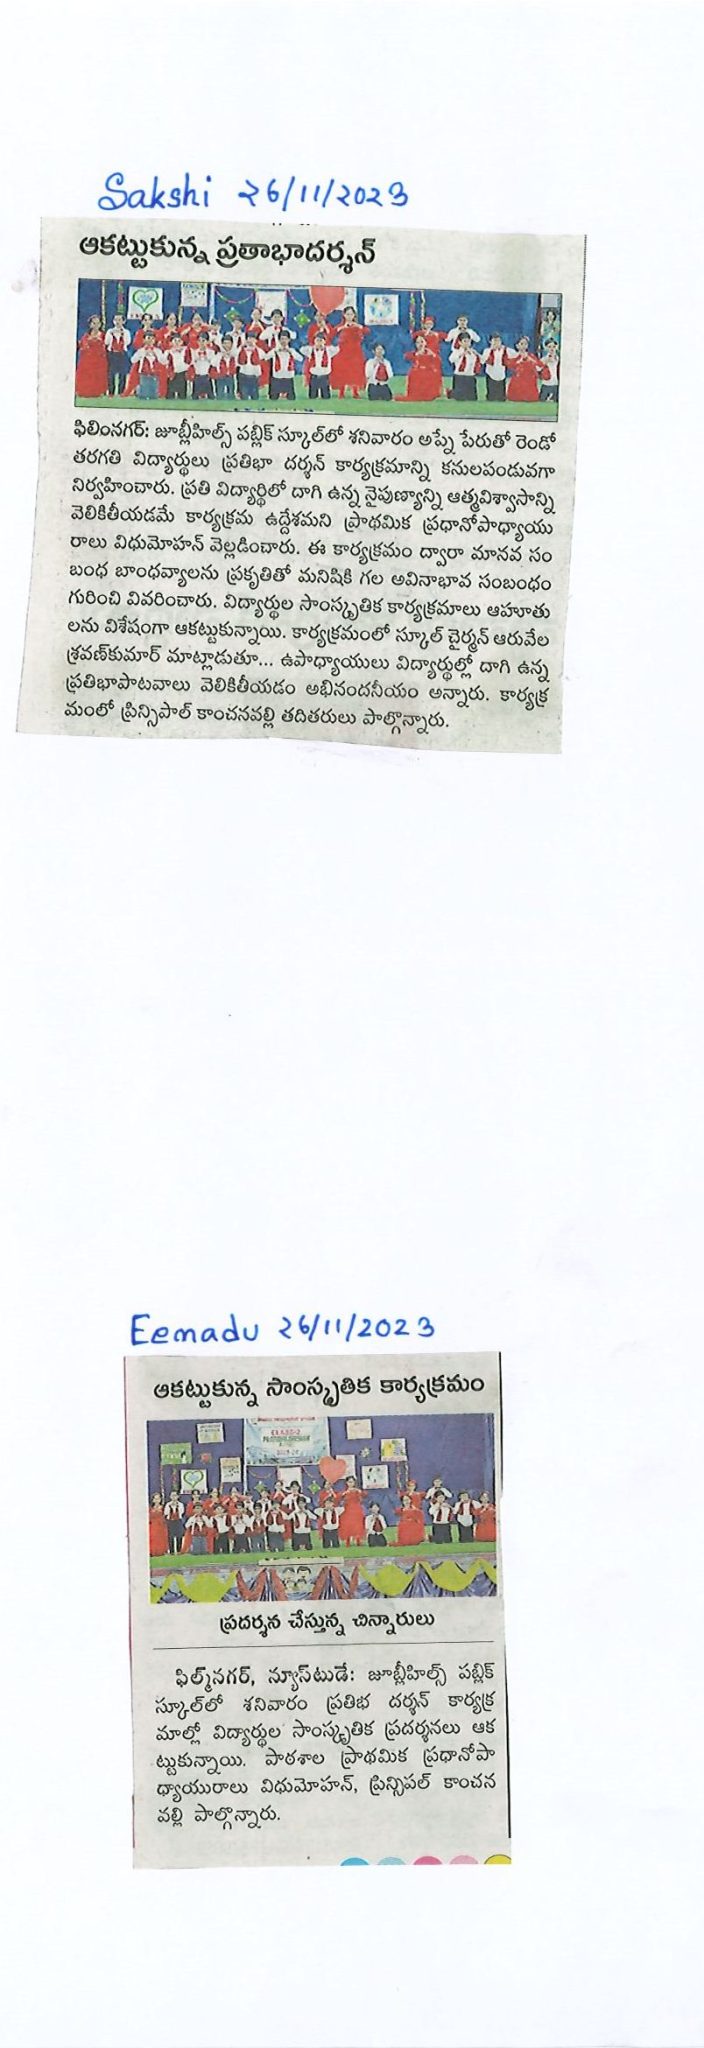 Sakshi 26/11/2023
ఆకట్టుకున్న ప్రతాభాదర్శన్
ఫిలింనగర్: జూబ్లీహిల్స్ పబ్లిక్ స్కూల్‌లో శనివారం అప్నే పేరుతో రెండో
తరగతి విద్యార్థులు ప్రతిభా దర్శన్ కార్యక్రమాన్ని కనులపండువగా
నిర్వహించారు. ప్రతి విద్యార్థిలో దాగి ఉన్న నైపుణ్యాన్ని ఆత్మవిశ్వాసాన్ని
వెలికితీయడమే కార్యక్రమ ఉద్దేశమని ప్రాథమిక ప్రధానోపాధ్యాయు
రాలు విధుమోహన్ వెల్లడించారు. ఈ కార్యక్రమం ద్వారా మానవ సం
బంధ బాంధవ్యాలను ప్రకృతితో మనిషికి గల అవినాభావ సంబంధం
గురించి వివరించారు. విద్యార్థుల సాంస్కృతిక కార్యక్రమాలు ఆహూతు
లను విశేషంగా ఆకట్టుకున్నాయి. కార్యక్రమంలో స్కూల్ చైర్మన్ ఆరువేల
శ్రవణ్‌కుమార్ మాట్లాడుతూ... ఉపాధ్యాయులు విద్యార్థుల్లో దాగి ఉన్న
ప్రతిభాపాటవాలు వెలికితీయడం అభినందనీయం అన్నారు. కార్యక్ర
మంలో ప్రిన్సిపాల్ కాంచనవల్లి తదితరులు పాల్గొన్నారు.
Eenadu 26/11/2023
ఆకట్టుకున్న సాంస్కృతిక కార్యక్రమం
ప్రదర్శన చేస్తున్న చిన్నారులు
ఫిల్మ్‌నగర్, న్యూస్‌టుడే: జూబ్లీహిల్స్ పబ్లిక్
స్కూల్‌లో శనివారం ప్రతిభ దర్శన్ కార్యక్ర
మాల్లో విద్యార్థుల సాంస్కృతిక ప్రదర్శనలు ఆక
ట్టుకున్నాయి. పాఠశాల ప్రాథమిక ప్రధానోపా
ధ్యాయురాలు విధుమోహన్, ప్రిన్సిపల్ కాంచన
వల్లి పాల్గొన్నారు.